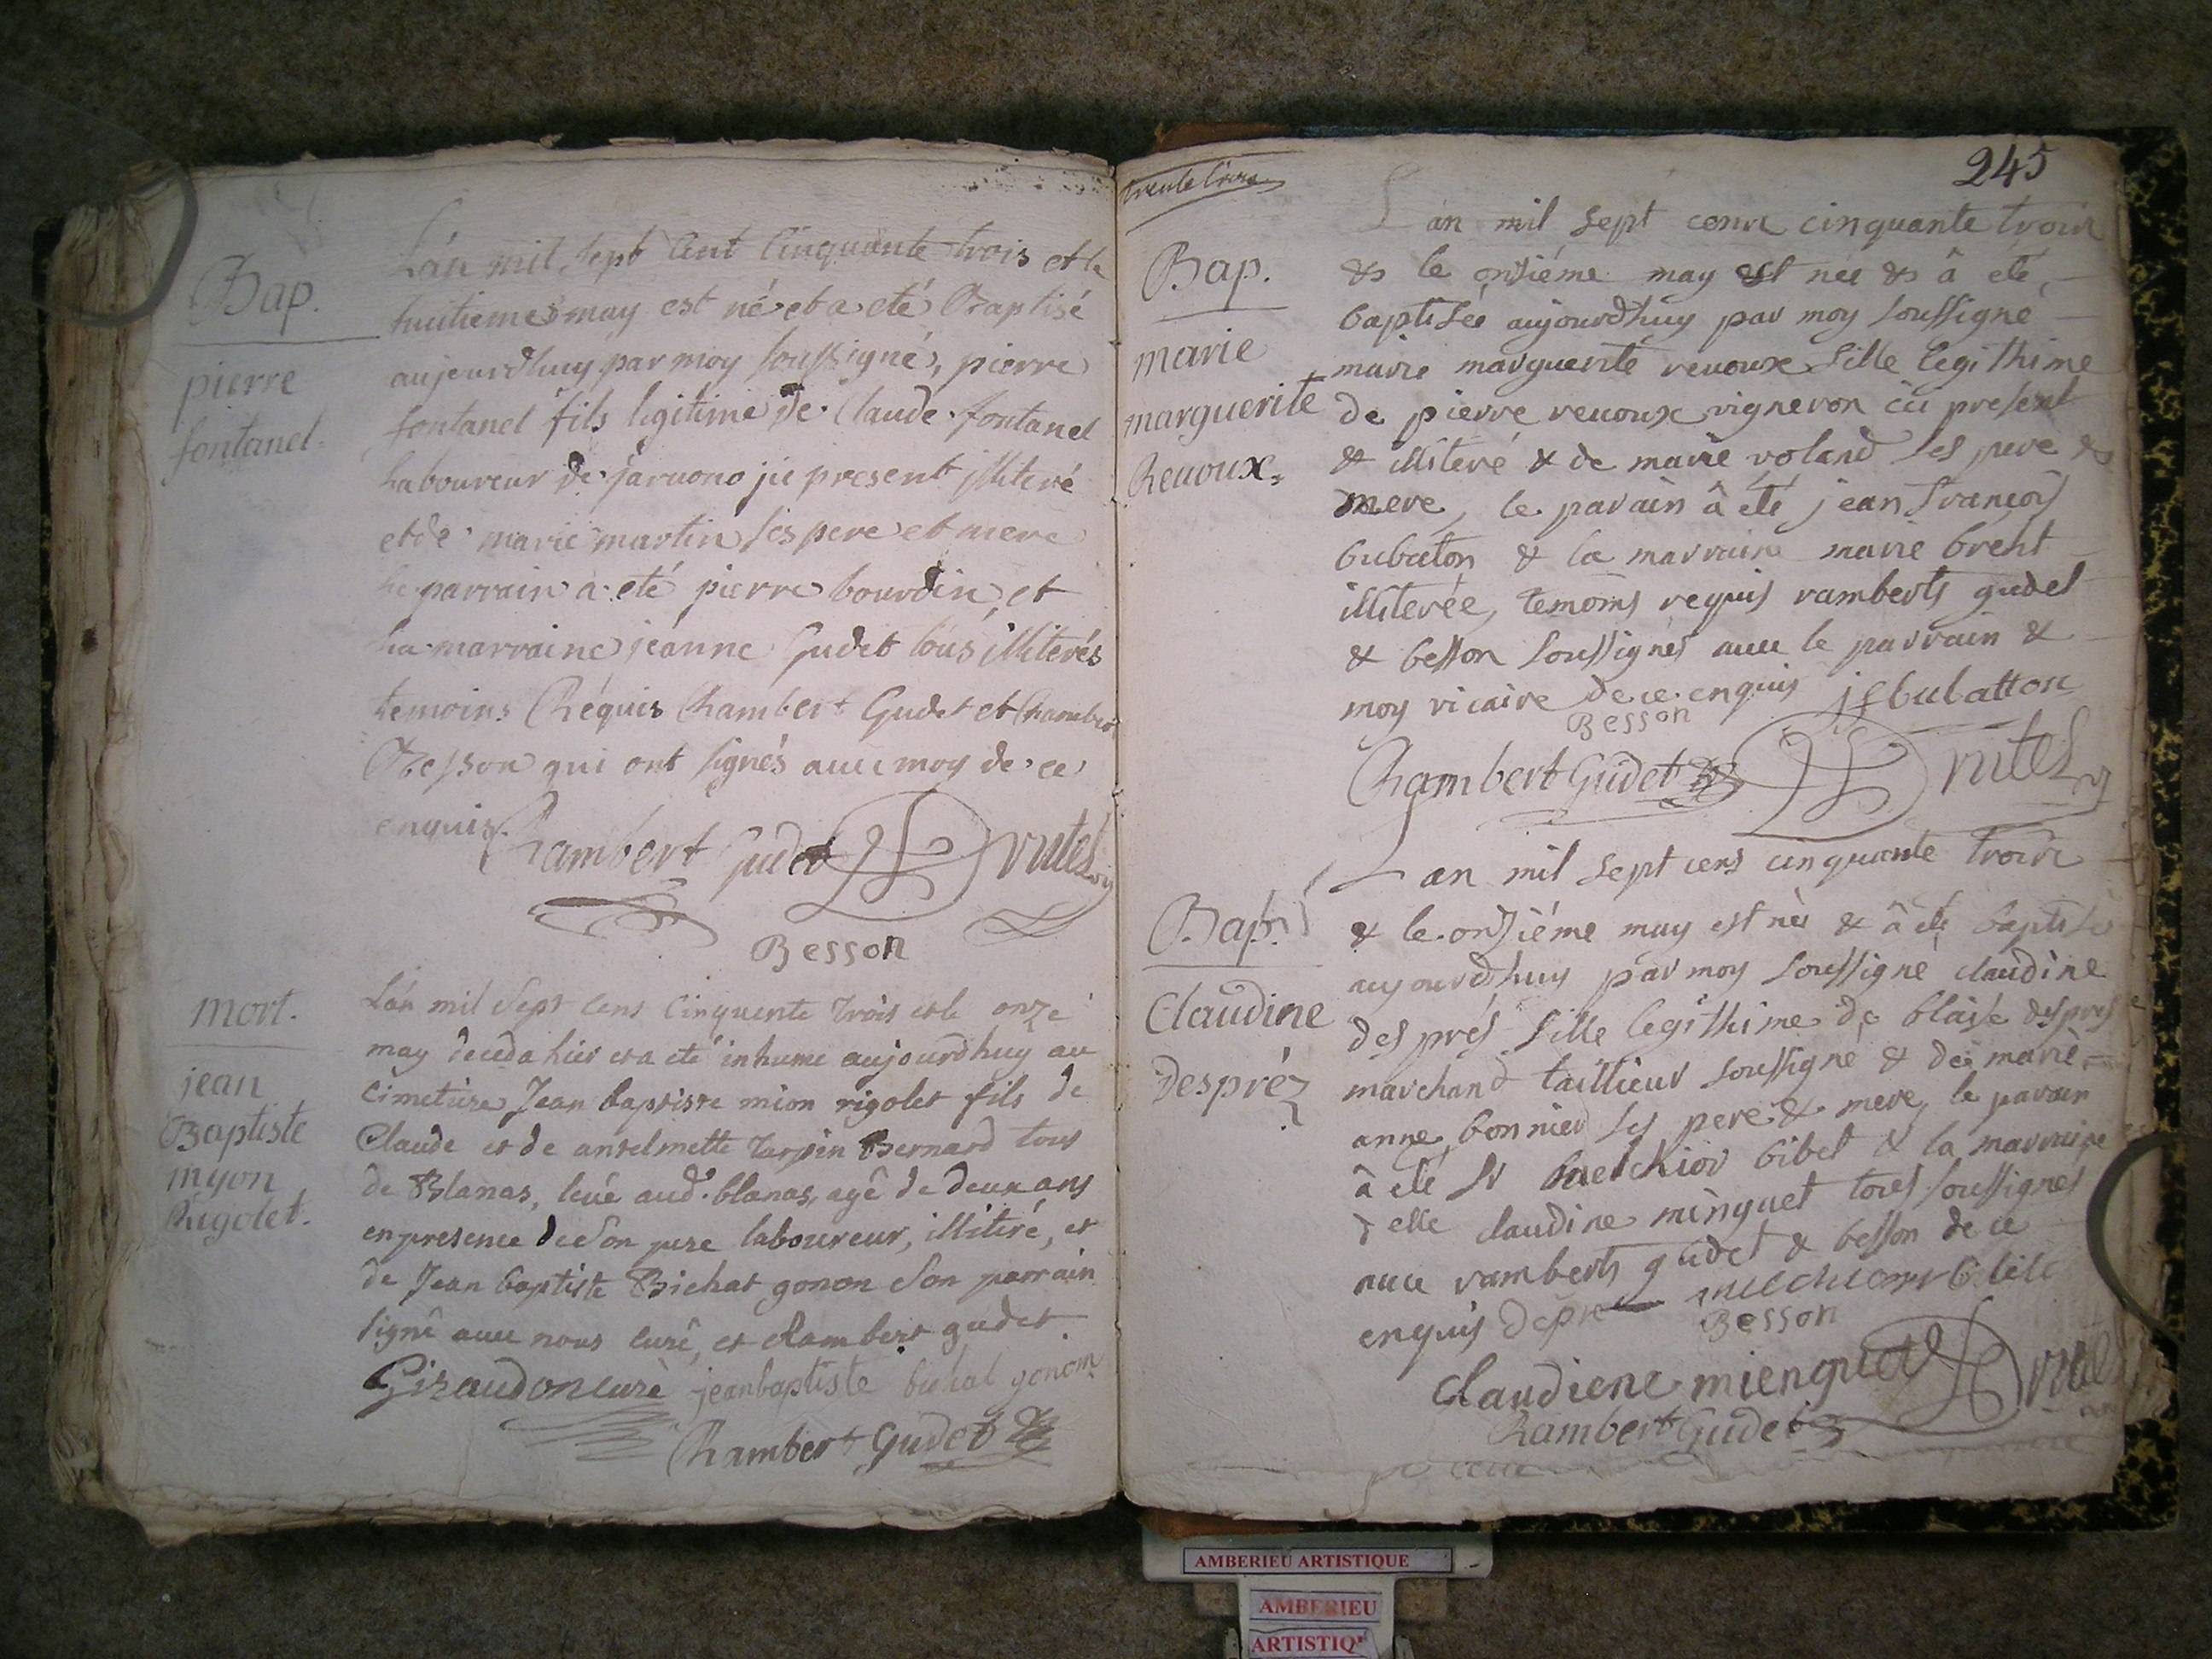 Bap.
pierre
fontanel.
L'an mil sept cent cinquante trois et le
huitieme may est né et a eté Baptisé
aujourdhuy par moy soussigné, pierre
fontanel fils legitime de Claude fontanel
laboureur de jaruono jci present jlliteré
et de marie martin ses pere et mere
le parrain a eté pierre bourdin, et
la marraine jeanne Gudet tous illiterés
temoins Réquis Rambert Gudet et
Besson qui ont signés auec moy de ce
enquis. Rambert Gudet
Besson
mort.
jean
Baptiste
myon
Rigolet.
L'an mil sept cens cinquente trois et le onze
may deceda hier et a eté inhumé aujourdhuy au
cimetiere Jean baptiste mion rigolet fils de
Claude et de antelmette tarpin Bernard tous
de Blanas, leué aud. blanas, agê de deux ans
en presence de son pere laboureur, illiteré, et
de Jean baptiste Bichat gonon son parrain
signê auec nous curé, et Rambert gudet.
Giraudon curé jeanbaptiste bichat gonom
Rambert Gudet
trente trois
245
Bap.
marie
marguerite
Reuoux.
L an mil sept cens cinquante trois
& le onziéme may est neé & â eté
baptisée aujourdhuy par moy soussigné
marie marguerite reuoux fille legithime
de pierre reuoux vigneron ici present
& illiteré & de marie voland ses pere &
mere, le parain â eté jean françois
bubaton & la marraine marie brent
illiterée, temoins requis ramberts gudet
& besson soussignés auec le parrain &
moy vicaire de ce enquis jfbubatton
Besson
Rambert Gudet
Bap.
Claudine
despréz
L an mil sept cens cinquante trois
& le onziéme may est neé & â eté baptisée
aujourdhuy par moy soussigné claudine
des prés fille legithime de blaise després
marchand taillieur soussigné & de marie
anne bonnied ses pere & mere, le parain
â eté Sr melchior bibet & la marraine
delle claudine minguet tous soussignés
auec ramberts gudet & besson de ce
enquis
Besson
claudiene mienguet
Rambert Gudet
AMBERIEU ARTISTIQUE
AMBERIEU
ARTISTIQ